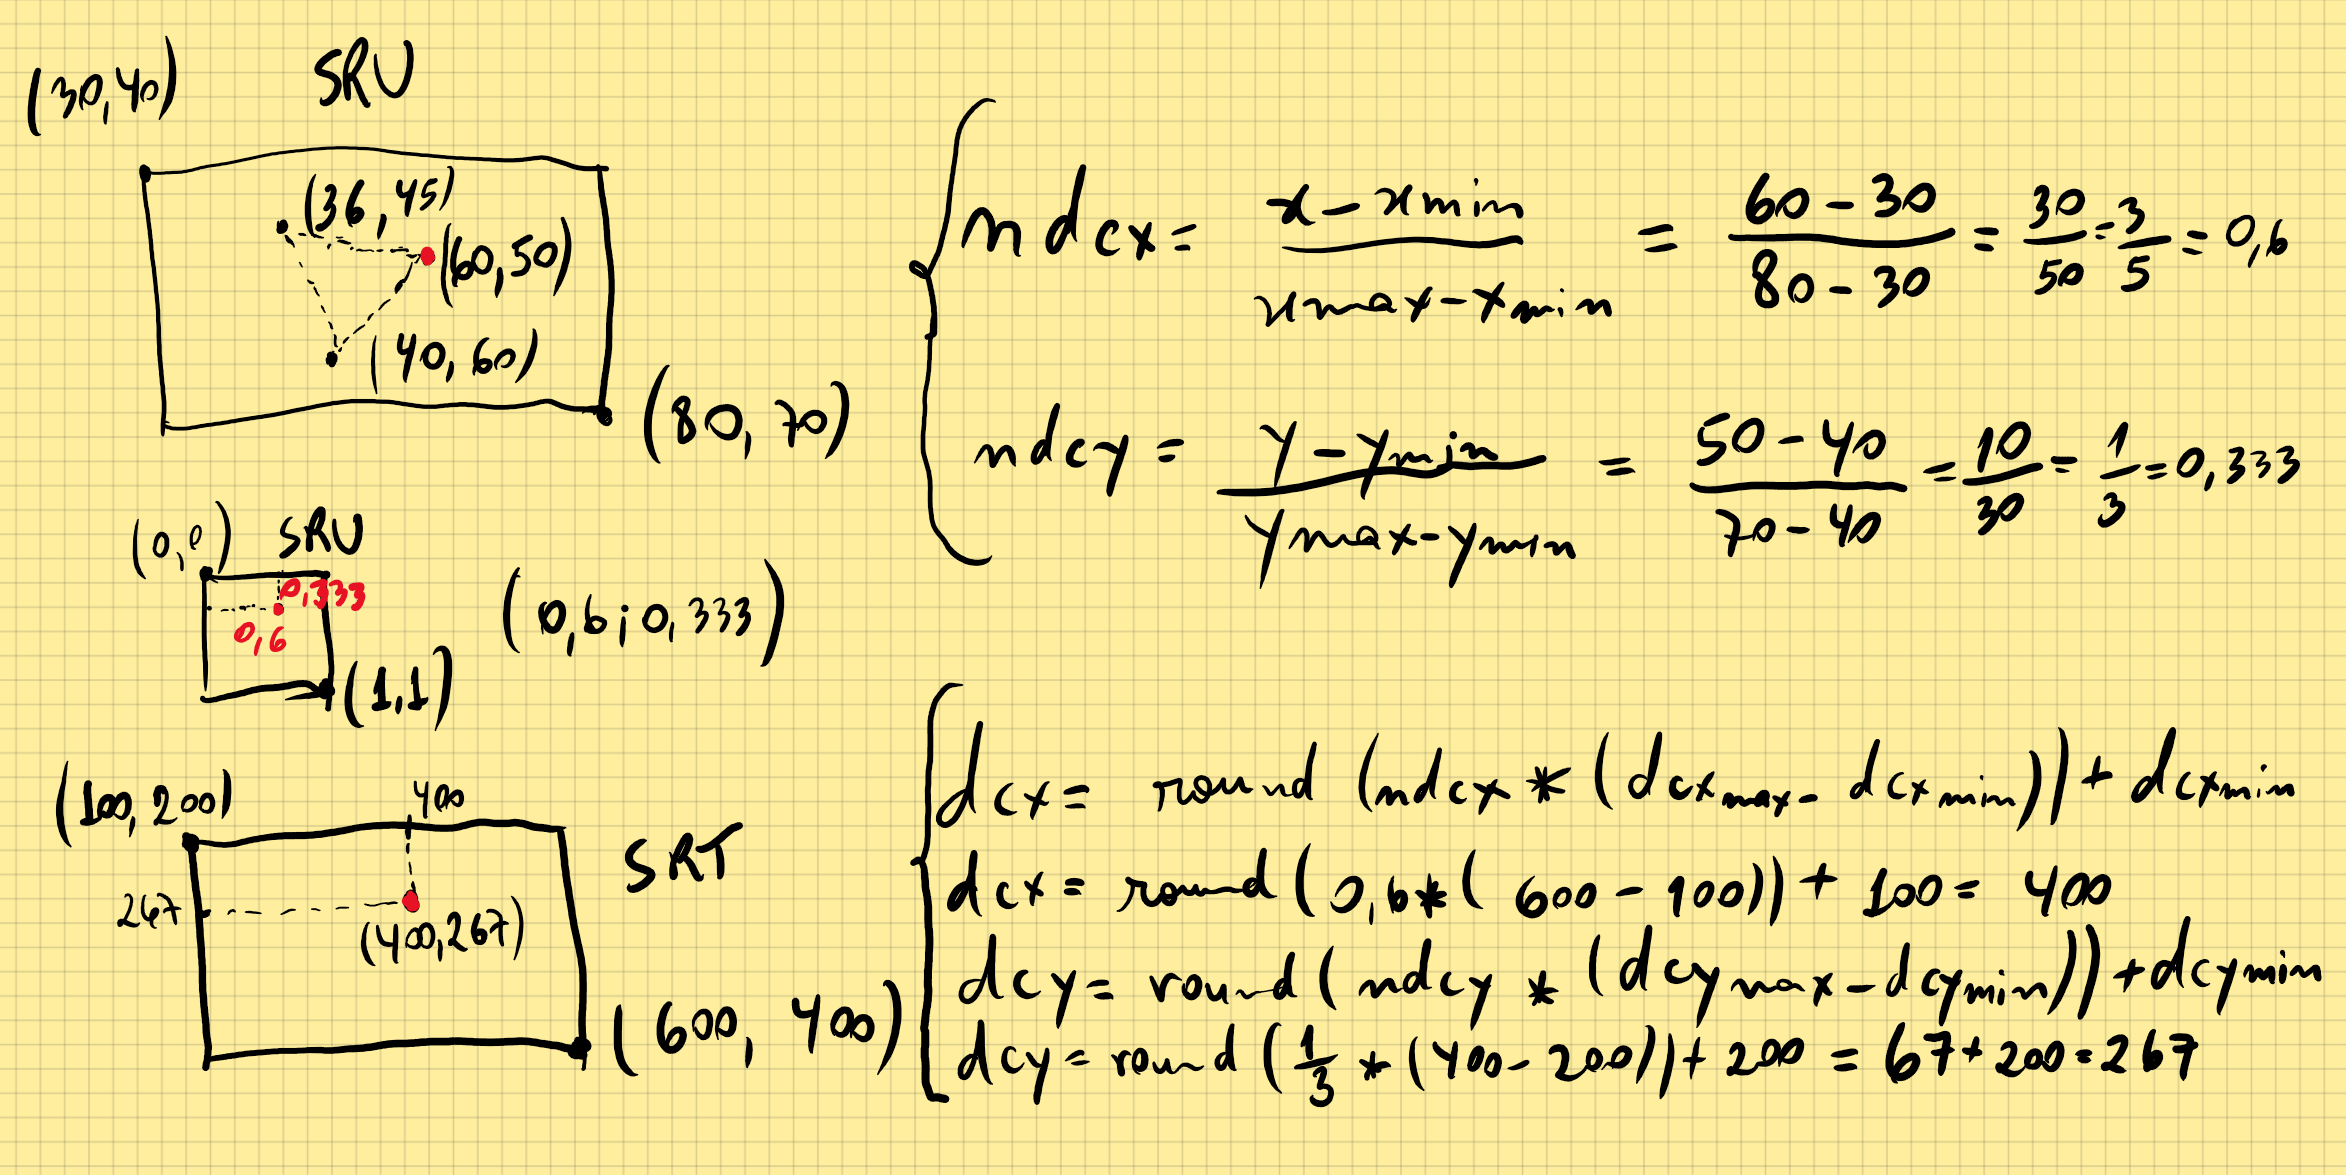 (30,40)
SRU
(36,45)
(60,50)
(40,60)
(80,70)
ndcx = x - xmin / xmax - xmin = 60 - 30 / 80 - 30 = 30/50 = 3/5 = 0,6
ndcy = y - ymin / ymax - ymin = 50 - 40 / 70 - 40 = 10/30 = 1/3 = 0,333
(0,0)
SRU
0,333
0,6
(1,1)
(0,6; 0,333)
(100,200)
400
SRT
267
(400,267)
(600, 400)
dcx = round (ndcx * (dcxmax - dcxmin)) + dcxmin
dcx = round (0,6 * (600 - 100)) + 100 = 400
dcy = round (ndcy * (dcymax - dcymin)) + dcymin
dcy = round (1/3 * (400 - 200)) + 200 = 67 + 200 = 267